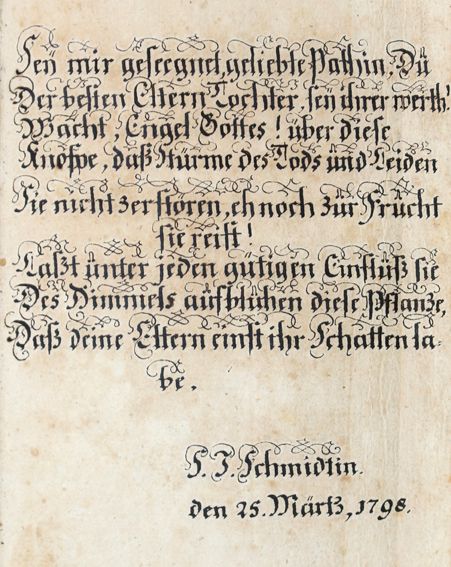 Seÿ mir geseegnet, geliebte Pathin, Dü
Der besten Eltern Tochter, seÿ ihrer werth!
Wacht, Engel Gottes! über diese
Knospe, daß Stürme des Tods ünd Leiden
Sie nicht zerstören, eh noch zür Frücht
sie reift!
Laßt ünter jeden gütigen Einflüß sie
Des Himmels aufblühen diese Pflanze,
Daß deine Eltern einst ihr Schatten la-
be.
S. J. Schmidtin.
den 25. Märtz, 1798.